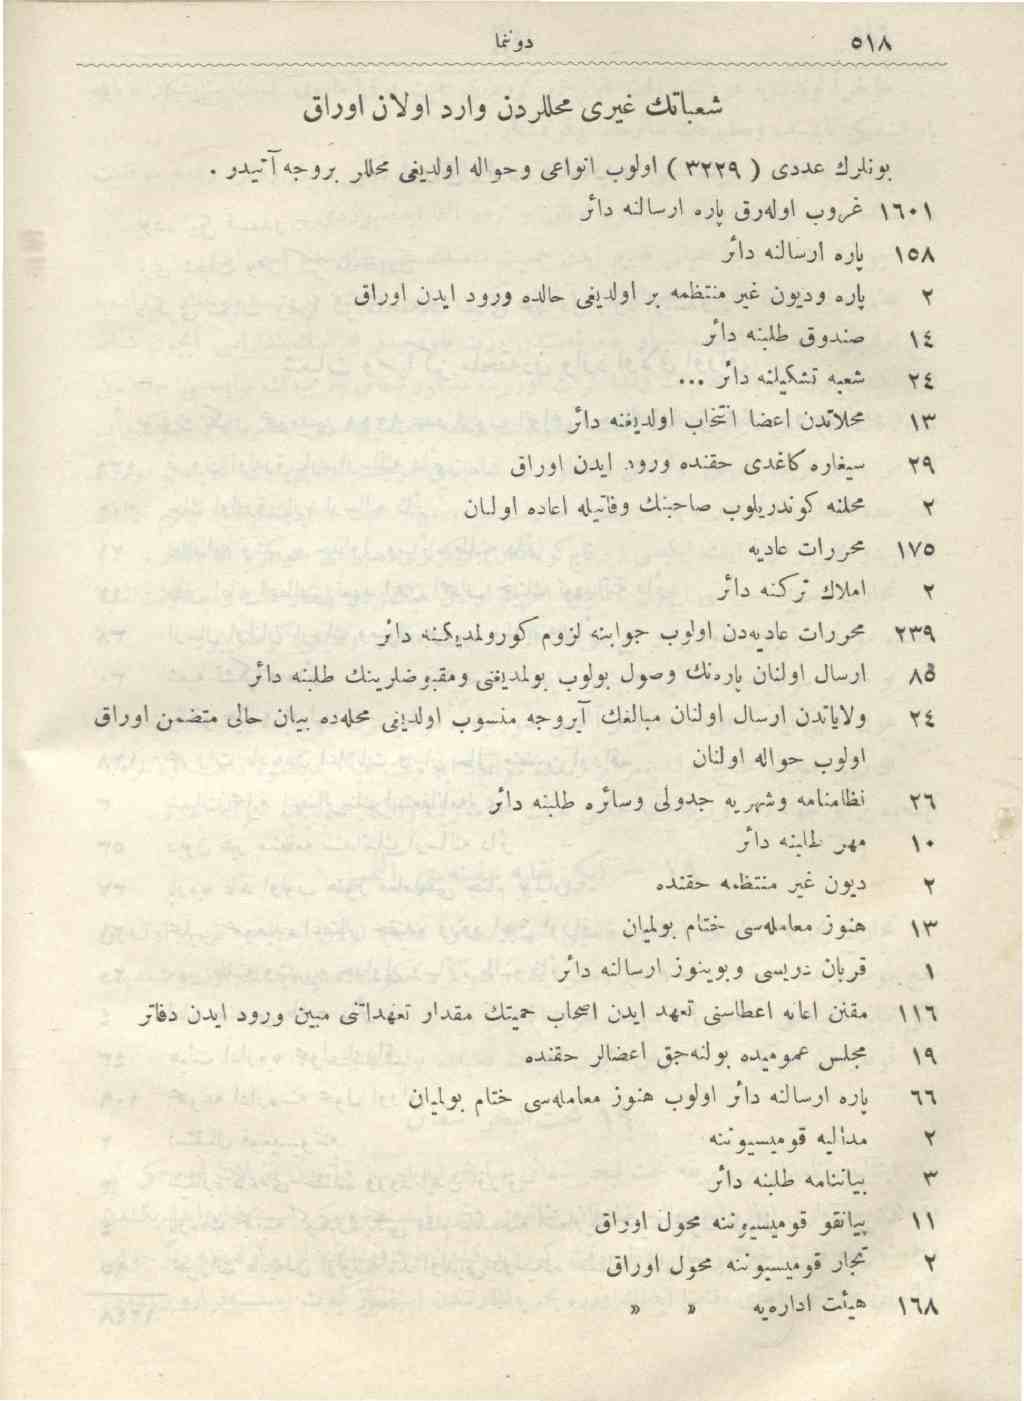 ٥١٨ دوننما
شعباتك غيرى محللردن وارد اولان اوراق
بونلرك عددى ( ٣٢٢٩ ) اولوب انواعى وحواله اولديغى محللر بروجه آتيدر .
١٦٠١ غروب اوله‌رق پاره ارسالنه دائر
١٥٨ پاره ارسالنه دائر
٢ پاره وديون غير منتظمه بر اولديغى حالده ورود ايدن اوراق
١٤ صندوق طلبنه دائر
٢٤ شعبه تشكيلنه دائر ...
١٣ محلاتدن اعضا انتخاب اولديغنه دائر
٢٩ سيغاره كاغدى حقنده ورود ايدن اوراق
٢ محلنه كوندريلوب صاحبنك وفاتيله اعاده اولنان
١٧٥ محررات عاديه
٢ املاك تركنه دائر
٢٣٩ محررات عاديه‌دن اولوب جوابنه لزوم كورولمديكنه دائر
٨٥ ارسال اولنان پاره‌نك وصول بولوب بولمديغنى ومقبوضلرينك طلبنه دائر
٢٤ ولاياتدن ارسال اولنان مبالغك آيروجه منسوب اولديغى محله‌ده بيان حالى متضمن اوراق
اولوب حواله اولنان
٢٦ نظامنامه وشهريه جدولى وسائره طلبنه دائر
١٠ مهر طلبنه دائر
٢ ديون غير منتظمه حقنده
١٣ هنوز معامله‌سى ختام بولميان
١ قربان دريسى وبوينوز ارسالنه دائر
١١٦ مقنن اعانه اعطاسنى تعهد ايدن اصحاب حميتك مقدار تعهداتنى مبين ورود ايدن دفاتر
١٩ مجلس عموميده بولنه‌جق اعضالر حقنده
٦٦ پاره ارسالنه دائر اولوب هنوز معامله‌سى ختام بولميان
٢ مداليه قوميسيوننه
٣ بياننامه طلبنه دائر
١١ پيانقو قوميسيوننه محول اوراق
٢ تجار قوميسيوننه محول اوراق
١٦٨ هيئت اداره‌يه » »